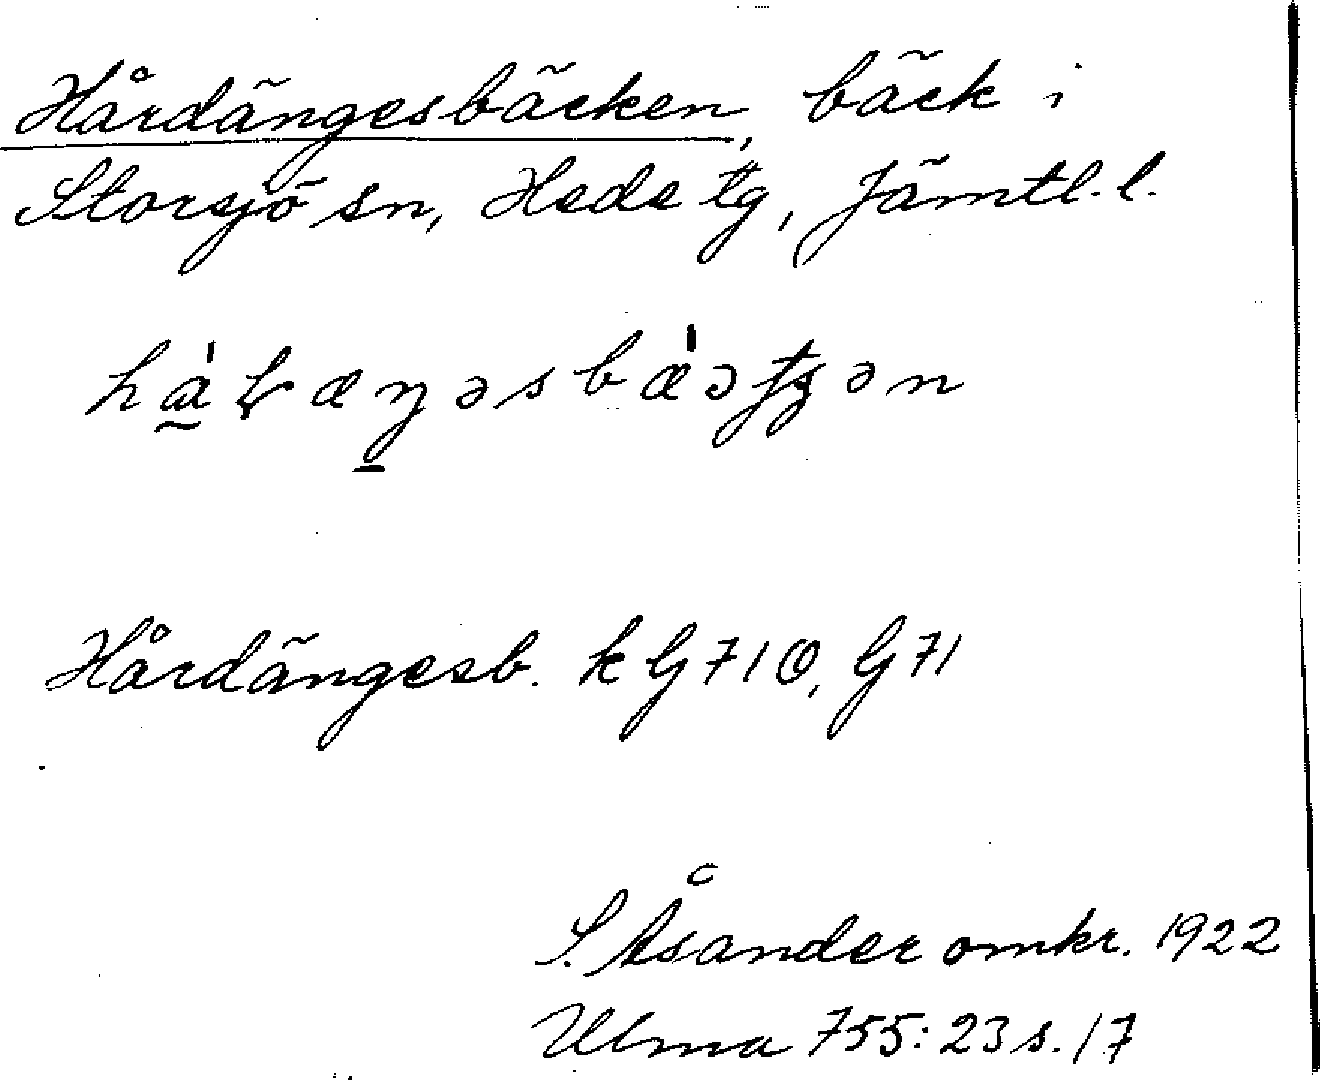 Hårdängesbäcken, bäck i
Storsjö sn, Hede tg, Jämtl. l.
Hårdängesb. k G 710, G 71
S. Åsander omkr. 1922
Ulma 755: 23 s. 17